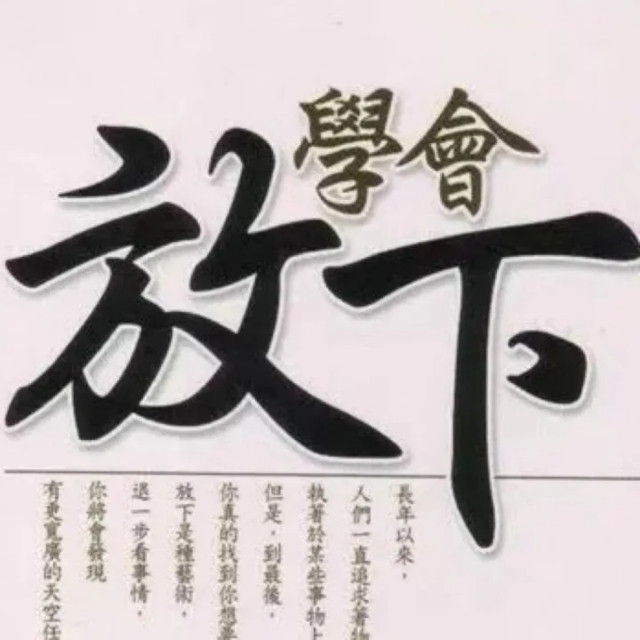 學會
放下
長年以來，
人們一直追求著物
執著於某些事物上
但是，到最後，
你真的找到你想要
放下是種藝術，
退一步看事情，
你將會發現
有更寬廣的天空任